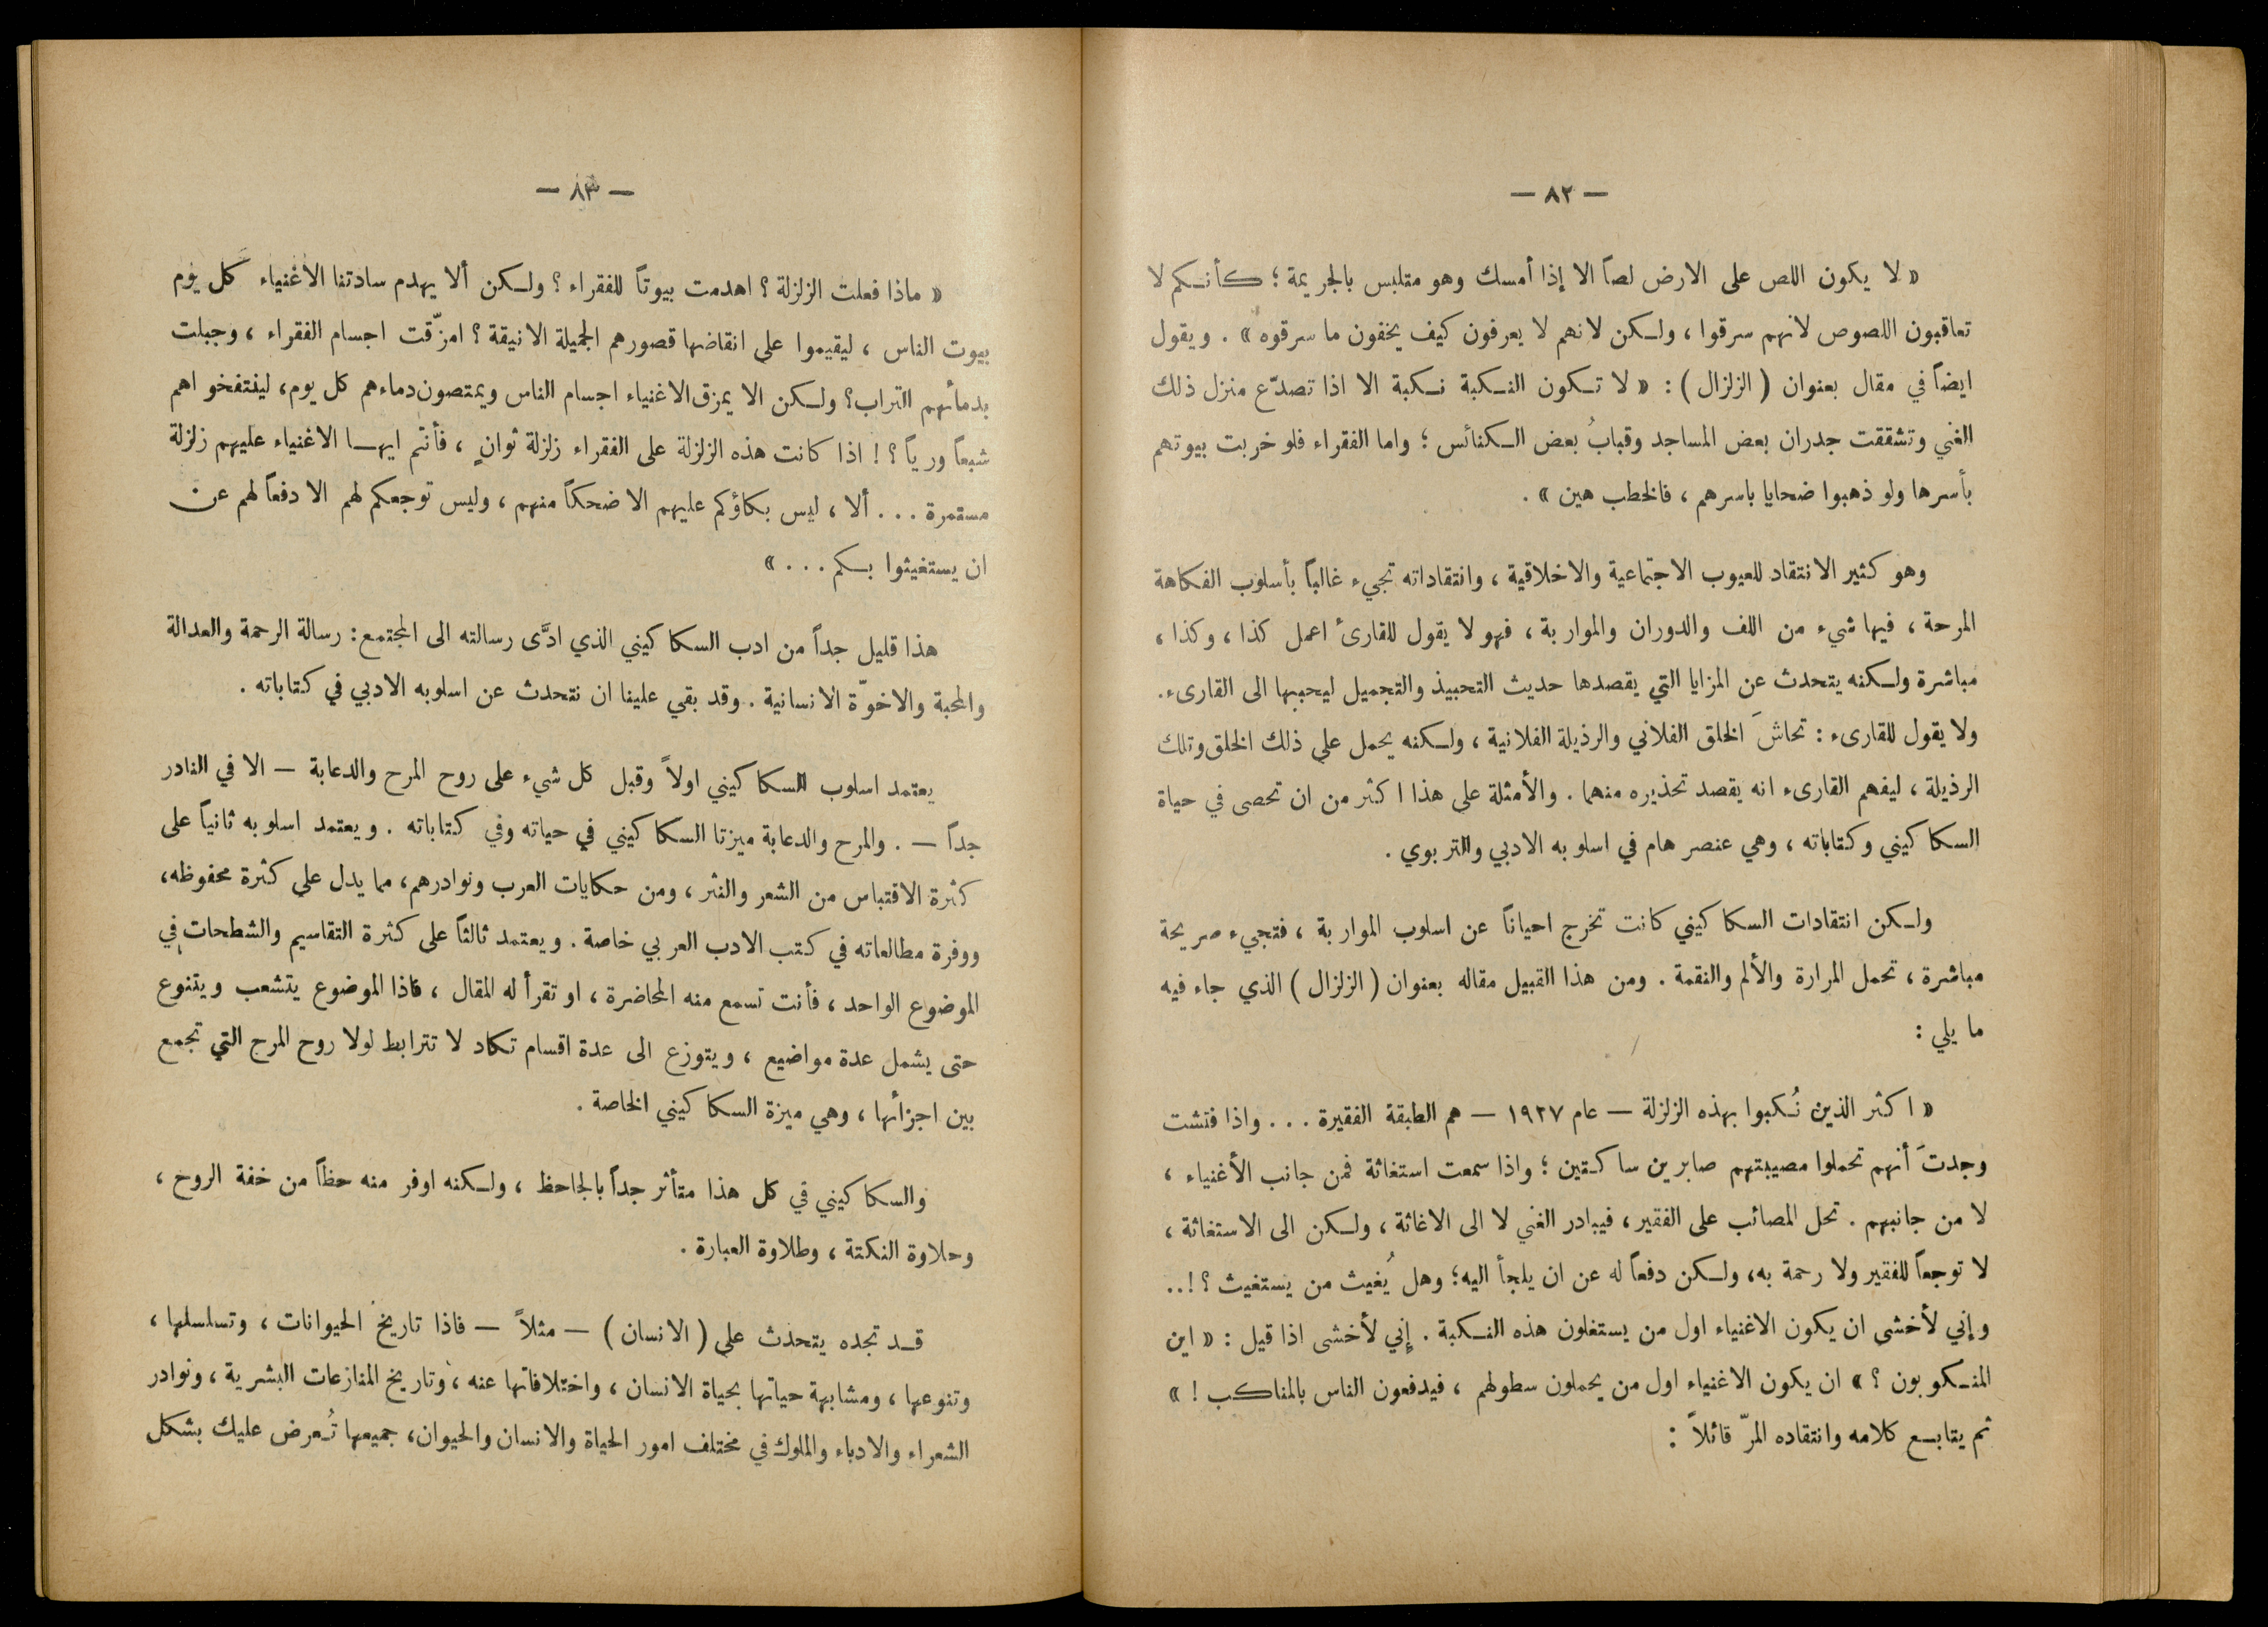 — ٨٢ —
« لا يكون اللص على الارض لصاً الا إذا أمسك وهو متلبس بالجريمة ؛ كأنكم لا
تعاقبون اللصوص لانهم سرقوا ، ولكن لانهم لا يعرفون كيف يخفون ما سرقوه » . ويقول
ايضاً في مقال بعنوان ( الزلزال ) : « لا تكون النكبة نكبة الا اذا تصدّع منزل ذلك
الغني وتشققت جدران بعض المساجد وقبابُ بعض الكنائس ؛ واما الفقراء فلو خربت بيوتهم
بأسرها ولو ذهبوا ضحايا باسرهم ، فالخطب هين » .
وهو كثير الانتقاد للعيوب الاجتماعية والاخلاقية ، وانتقاداته تجيء غالباً بأسلوب الفكاهة
المرحة ، فيها شيء من اللف والدوران والمواربة ، فهو لا يقول للقارئ اعمل كذا ، وكذا ،
مباشرة ولكنه يتحدث عن المزايا التي يقصدها حديث التحبيذ والتجميل ليحببها الى القارىء .
ولا يقول للقارىء : تحاشَ الخلق الفلاني والرذيلة الفلانية ، ولكنه يحمل على ذلك الخلق وتلك
الرذيلة ، ليفهم القارىء انه يقصد تحذيره منهما . والأمثلة على هذا اكثر من ان تحصى في حياة
السكاكيني وكتاباته ، وهي عنصر هام في اسلوبه الادبي والتربوي .
ولكن انتقادات السكاكيني كانت تخرج احياناً عن اسلوب المواربة ، فتجيء صريحة
مباشرة ، تحمل المرارة والألم والنقمة . ومن هذا القبيل مقاله بعنوان ( الزلزال ) الذي جاء فيه
ما يلي :
« اكثر الذين نُكبوا بهذه الزلزلة — عام ١٩٢٧ — هم الطبقة الفقيرة . . . واذا فتشت
وجدتَ أنهم تحملوا مصيبتهم صابرين ساكتين ؛ واذا سمعت استغاثة فمن جانب الأغنياء ،
لا من جانبهم . تحل المصائب على الفقير ، فيبادر الغني لا الى الاغاثة ، ولكن الى الاستغاثة ،
لا توجعاً للفقير ولا رحمة به، ولكن دفعاً له عن ان يلجأ اليه؛ وهل يُغيث من يستغيث ؟ ! ..
وإني لأخشى ان يكون الاغنياء اول من يستغلون هذه النكبة . إني لأخشى اذا قيل : « اين
المنكوبون ؟ » ان يكون الاغنياء اول من يحملون سطولهم ، فيدفعون الناس بالمناكب ! »
ثم يتابع كلامه وانتقاده المرّ قائلاً :
— ٨٣ —
« ماذا فعلت الزلزلة ؟ اهدمت بيوتاً للفقراء ؟ ولكن ألا يهدم سادتنا الاغنياء كل يوم
بيوت الناس ، ليقيموا على انقاضها قصورهم الجميلة الانيقة ؟ امزّقت اجسام الفقراء ، وجبلت
بدمائهم التراب؟ ولكن الا يمزق الاغنياء اجسام الناس ويمتصون دماءهم كل يوم، لينتفخو اهم
شبعاً ورياً ؟ ! اذا كانت هذه الزلزلة على الفقراء زلزلة ثوانٍ ، فأنتم ايها الاغنياء عليهم زلزلة
مستمرة . . . ألا ، ليس بكاؤكم عليهم الا ضحكاً منهم ، وليس توجعكم لهم الا دفعاً لهم عن
ان يستغيثوا بكم . . . »
هذا قليل جداً من ادب السكاكيني الذي ادَّى رسالته الى المجتمع : رسالة الرحمة والعدالة
والمحبة والاخوّة الانسانية . وقد بقي علينا ان نتحدث عن اسلوبه الادبي في كتاباته .
يعتمد اسلوب السكاكيني اولاً وقبل كل شيء على روح المرح والدعابة — الا في النادر
جداً — . والمرح والدعابة ميزتا السكاكيني في حياته وفي كتاباته . ويعتمد اسلوبه ثانياً على
كثرة الاقتباس من الشعر والنثر ، ومن حكايات العرب ونوادرهم، مما يدل على كثرة محفوظه،
ووفرة مطالعاته في كتب الادب العربي خاصة . ويعتمد ثالثاً على كثرة التقاسيم والشطحات في
الموضوع الواحد ، فأنت تسمع منه المحاضرة ، او تقرأ له المقال ، فاذا الموضوع يتشعب ويتنوع
حتى يشمل عدة مواضيع ، ويتوزع الى عدة اقسام تكاد لا تترابط لولا روح المرح التي تجمع
بين اجزائها ، وهي ميزة السكاكيني الخاصة .
والسكاكيني في كل هذا متأثر جداً بالجاحظ ، ولكنه اوفر منه حظاً من خفة الروح ،
وحلاوة النكتة ، وطلاوة العبارة .
قد تجده يتحدث على ( الانسان ) — مثلاً — فاذا تاريخ الحيوانات ، وتسلسلها ،
وتنوعها ، ومشابهة حياتها بحياة الانسان ، واختلافاتها عنه ، وتاريخ المنازعات البشرية ، ونوادر
الشعراء والادباء والملوك في مختلف امور الحياة والانسان والحيوان، جميعها تُعرض عليك بشكل